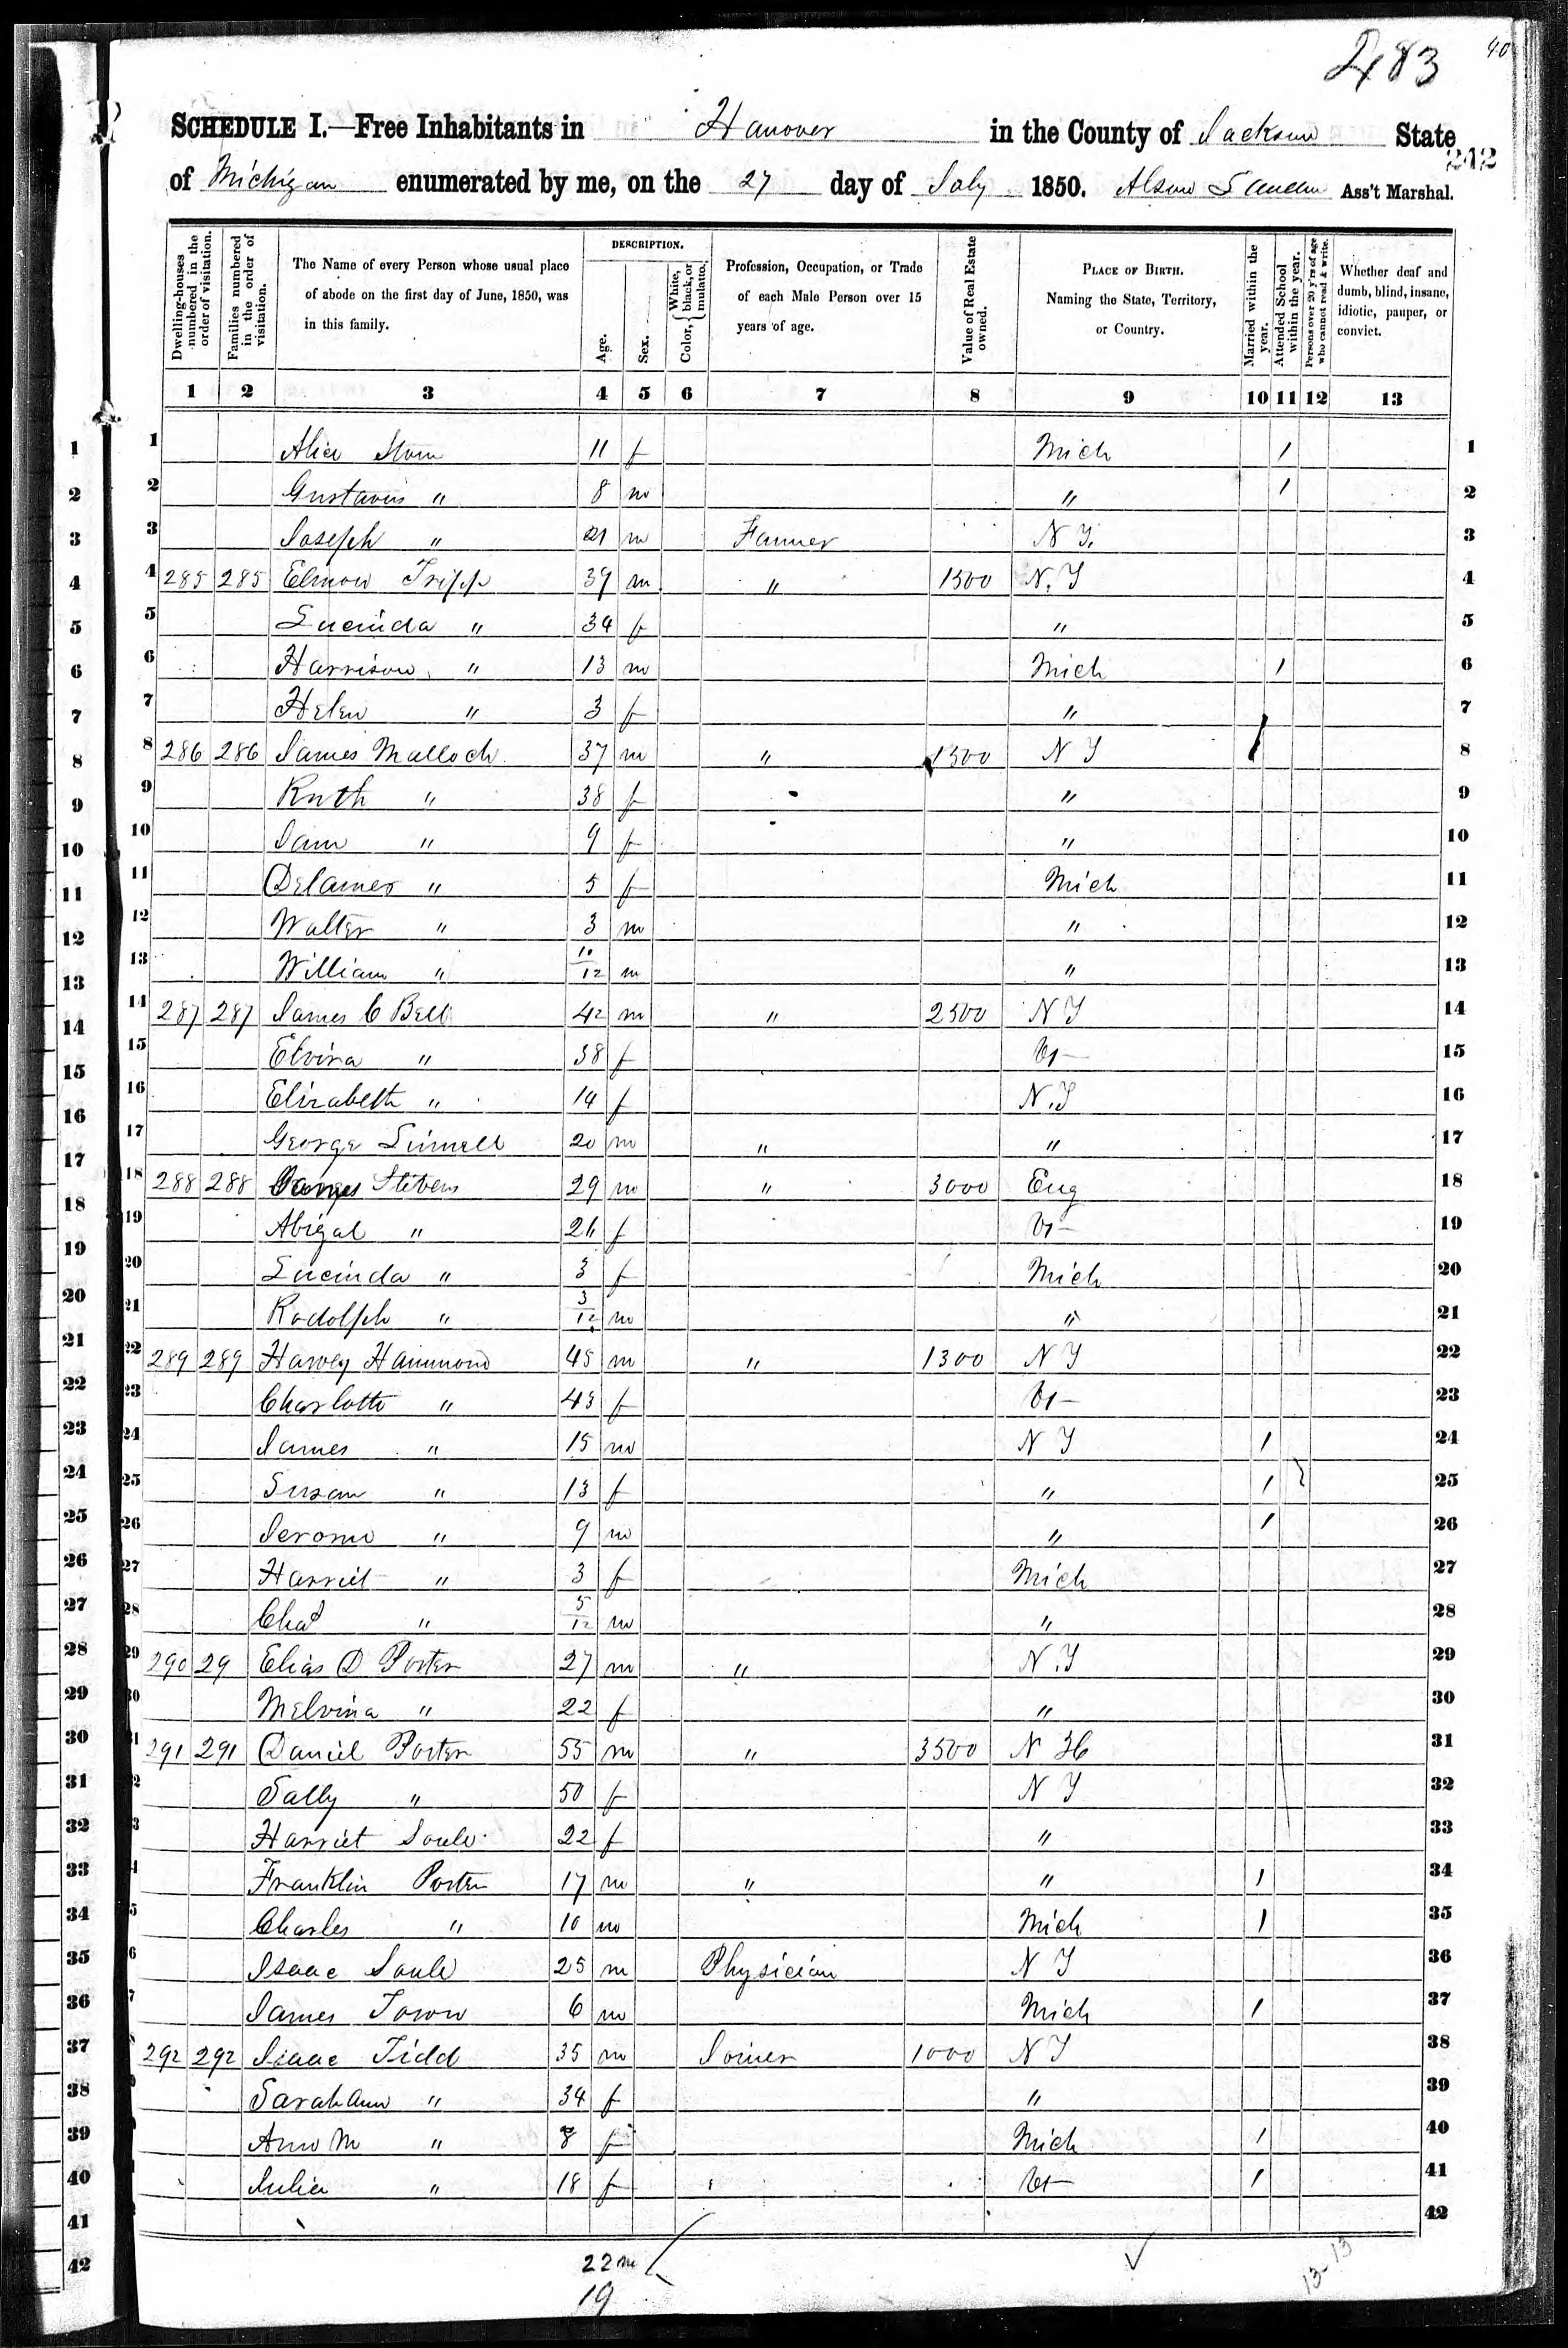 483
40
SCHEDULE I.—Free Inhabitants in Hanover in the County of Jackson State
242
of Michigan enumerated by me, on the 27 day of July 1850. Ass't Marshal.
Dwelling-houses numbered in the order of visitation.
Families numbered in the order of visitation.
The Name of every Person whose usual place of abode on the first day of June, 1850, was in this family.
DESCRIPTION.
Age.
Sex.
Color, { White, black, or mulatto.
Profession, Occupation, or Trade of each Male Person over 15 years of age.
Value of Real Estate owned.
PLACE OF BIRTH. Naming the State, Territory, or Country.
Married within the year.
Attended School within the year.
Persons over 20 y'rs of age who cannot read & write.
Whether deaf and dumb, blind, insane, idiotic, pauper, or convict.
1 2 3 4 5 6 7 8 9 10 11 12 13
1 Alice 11 f Mich 1 1
2 Gustavus " 8 m " 1 2
3 Joseph " 21 m Farmer N Y. 3
4 285 285 Elmow Tripp 39 m " 1500 N. Y 4
5 Lucinda " 34 f " 5
6 Harrison " 13 m Mich 1 6
7 Helen " 3 f " 7
8 286 286 James Malloch 37 m " 1300 N Y 1 8
9 Ruth " 38 f " 9
10 Jane " 9 f " 10
11 Delamer " 5 f Mich 11
12 Walter " 3 m " 12
13 William " 10/12 m " 13
14 287 287 James C Bell 42 m " 2500 N Y 14
15 Elvira " 38 f Vt 15
16 Elizabeth " 14 f N. Y 16
17 George Linnell 20 m " " 17
18 288 288 James Stevens 29 m " 3000 Eng 18
19 Abigal " 26 f Vt 19
20 Lucinda " 3 f Mich 20
21 Rodolph " 3/12 m " 21
22 289 289 Harvey Hammond 45 m " 1300 N Y 22
23 Charlotte " 43 f Vt 23
24 James " 15 m N Y 1 24
25 Susan " 13 f " 1 25
26 Jerome " 9 m " 1 26
27 Harriet " 3 f Mich 27
28 Chas " 5/12 m " 28
29 290 29 Elias D Porter 27 m " N. Y 29
30 Melvina " 22 f " 30
31 291 291 Daniel Porter 55 m " 3500 N H 31
32 Sally " 50 f N Y 32
33 Harriet Soule 22 f " 33
34 Franklin Porter 17 m " " 1 34
35 Charles " 10 m Mich 1 35
36 Isaac Soule 25 m Physician N Y 36
37 James Town 6 m Mich 1 37
38 292 292 Isaac Tidd 35 m Joiner 1000 N Y 38
39 Sarah Ann " 34 f " 39
40 Ann M " 8 f Mich 1 40
41 Julia " 18 f Vt 1 41
42
22 m
19
13-13